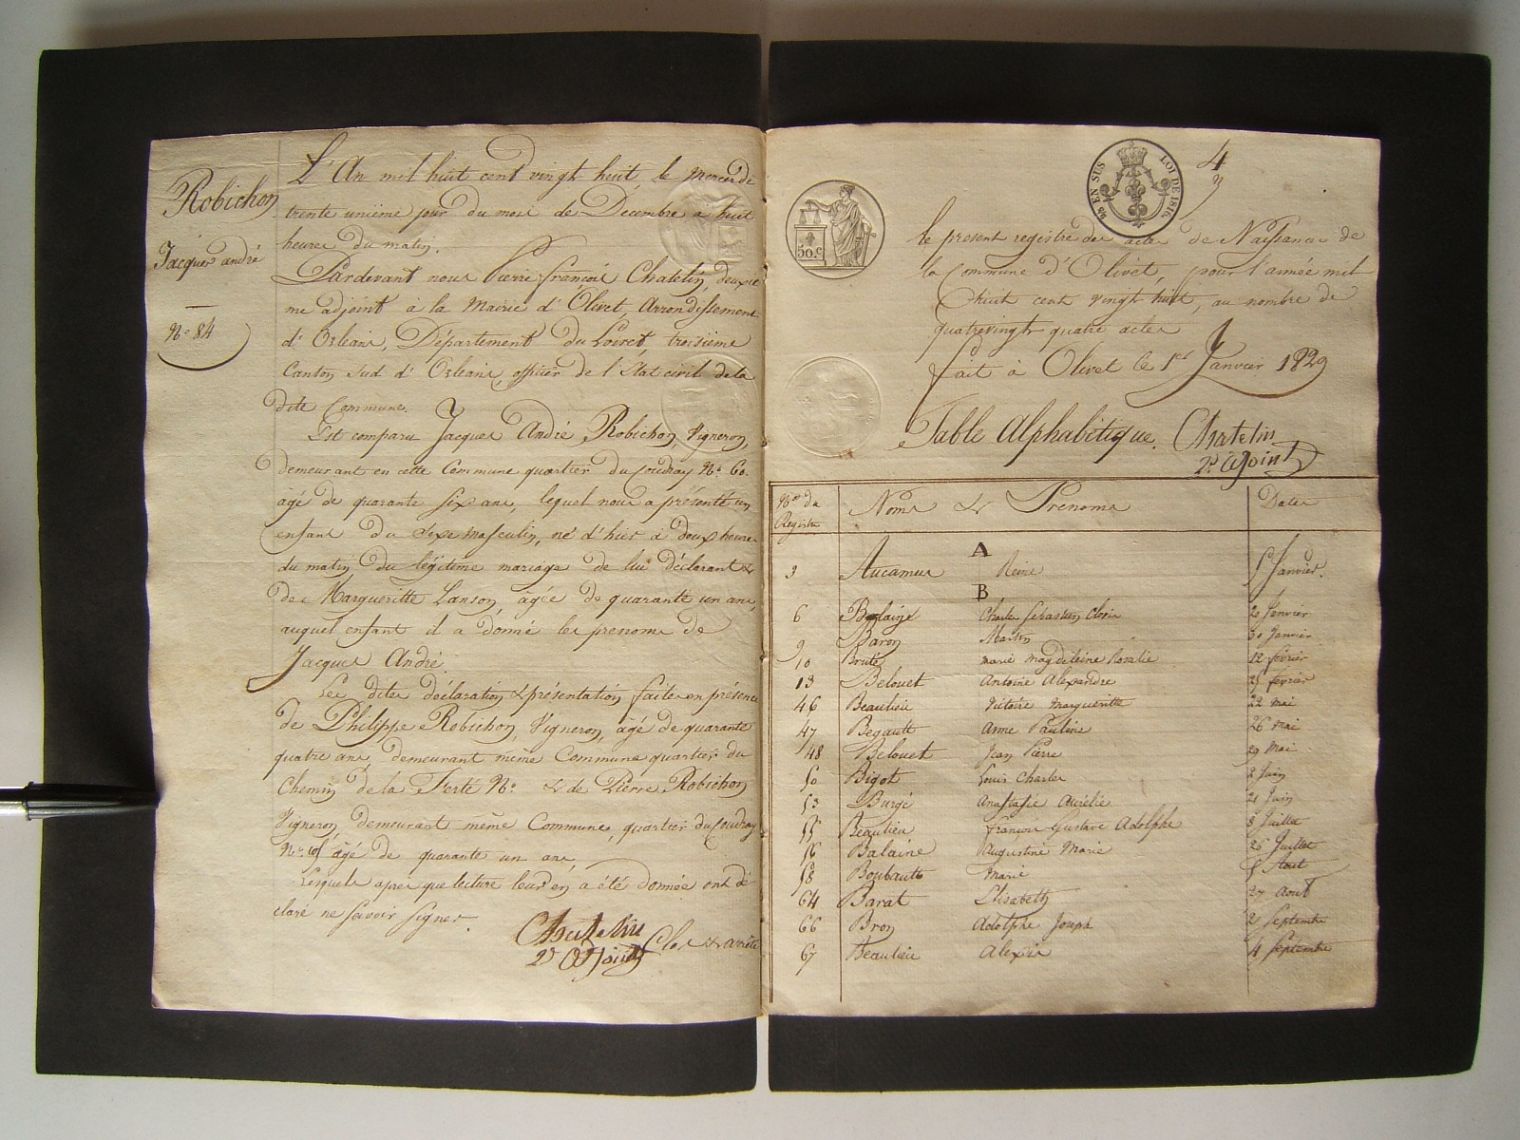 Robichon
Jacques andré
No 84
L'An mil huit cent vingt huit, le mercredi
trente unième jour du mois de Décembre a huit
heures du matin.
Pardevant nous Pierre françois Chatelin, deuxiè
me adjoint à la Mairie d'Olivet, Arrondissement
d'Orleans, Département du Loiret, troisième
Canton Sud d'Orleans, officier de l'Etat civil de la
dite Commune.
Est comparu Jacques André Robichon Vigneron,
demeurant en cette Commune quartier du Coudray No 60
agé de quarante six ans, lequel nous a présenté un
enfant du Sexe masculin, né d'hier à deux heures
du matin du légitime mariage de lui déclarant &
de Margueritte Lanson, agée de quarante un ans,
auquel enfant il a donné les prenoms de
Jacques André
Les dites déclaration & présentation faites en présence
de Philippe Robichon, Vigneron, agé de quarante
quatre ans, demeurant même Commune quartier du
Chemin de la Ferté No & de Pierre Robichon
Vigneron demeurant même Commune, quartier du Coudray
No agé de quarante un ans,
Lesquels apres que lecture leur en a été donnée ont dé
claré ne Savoir Signer.
Chatelin
2d adjoint
Clos & arrêté
50 EN SUS LOI DE 1816
4
50.c
le present registre des actes de Naissance de
la Commune d'Olivet, pour l'année mil
huit cent vingt huit, au nombre de
quatrevingt quatre actes
fait à Olivet le 1er Janvier 1829
Table Alphabétique. Chatelin
2d adjoint
Nos du Registre Noms & Prenoms Dates
A
3 Aucamus Reine Janvier.
B
6 Balaize Charles Sébastien Janvier
9 Baron Martin 30 Janvier
10 Bruté marie magdeleine Rosalie 12 février
13 Belouet Antoine Alexandre 25 février
46 Beaulieu Victoire Margueritte 22 mai
47 Begault Anne Pauline 26 mai
48 Belouet Jean Pierre 29 Mai
50 Bigot Louis Charles 2 Juin
53 Burgé Anastasie Aurélie 21 Juin
55 Beaulieu francois Gustave Adolphe 8 Juillet
56 Balaine Augustine Marie 25 Juillet
58 Boubault Marie Aout
64 Barat Elisabeth 27 Aout
66 Bron Adolphe Joseph 2 Septembre
67 Beaulieu Alexis 4 Septembre